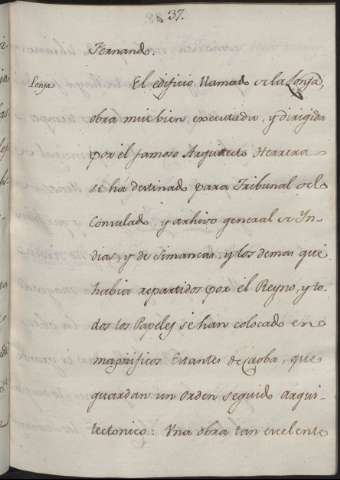 37.
Fernando.
Lonja
El edificio llamado de la Lonja,
obra mui bien executada, y dirigida
por el famoso Arquitecto Herrera
se ha destinado para Tribunal del
Consulado, y archivo general de In-
dias, y de Simancas, y los demas que
habia repartidos por el Reyno, y to-
dos los Papeles se han colocado en
magnificos Estantes de Caoba, que
guardan un orden seguido arqui-
tectonico: Una obra tan excelente